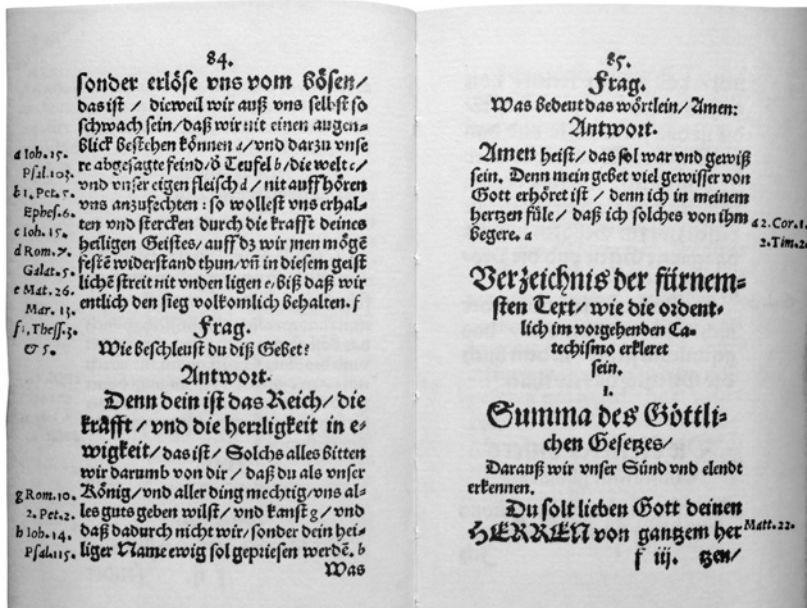 84.
sonder erlöse vns vom bösen/
das ist / dieweil wir auß vns selbst so
schwach sein/daß wir nit einen augen⸗
blick bestehen können a/vnd darzu vnse
re abgesagte feind/ð Teufel b/die welt c/
vnd vnser eigen fleisch d / nit auffhören
vns anzufechten : so wollest vns erhal⸗
ten vnd stercken durch die krafft deines
heiligen Geistes/auff dz wir jnen mögẽ
festẽ widerstand thun/vñ in diesem geist
lichẽ streit nit vnden ligen e/biß daß wir
entlich den sieg volkomlich behalten. f
Frag.
Wie beschleust du diß Gebet?
Antwort:
Denn dein ist das Reich/ die
krafft / vnd die herrligkeit in e⸗
wigkeit/das ist/ Solchs alles bitten
wir darumb von dir / daß du als vnser
König/vnd aller ding mechtig/vns al⸗
les guts geben wilst/ vnd kanst g/ vnd
daß dadurch nicht wir/sonder dein hei⸗
liger Name ewig sol gepriesen werdẽ. h
Was
a Ioh. 15.
Psal. 103.
b 1. Pet. 5.
Ephes. 6.
c Ioh. 15.
d Rom. 7.
Galat. 5.
e Mat. 26.
Mar. 13.
f 1. Thess. 3.
& 5.
g Rom. 10.
2. Pet. 2.
h Ioh. 14.
Psal. 115.
85.
Frag.
Was bedeut das wörtlein/ Amen:
Antwort.
Amen heist/ das sol war vnd gewiß
sein. Denn mein gebet viel gewisser von
Gott erhöret ist / denn ich in meinem
hertzen füle/ daß ich solches von ihm
begere. a
a 2. Cor. 1.
2. Tim. 2.
Verzeichnis der fürnem⸗
sten Text/ wie die ordent⸗
lich im vorgehenden Ca⸗
techismo erkleret
sein.
1.
Summa des Göttli⸗
chen Gesetzes/
Darauß wir vnser Sünd vnd elendt
erkennen.
Du solt lieben Gott deinen
HERREN von gantzem her
Matt. 22.
f iij. tzen/